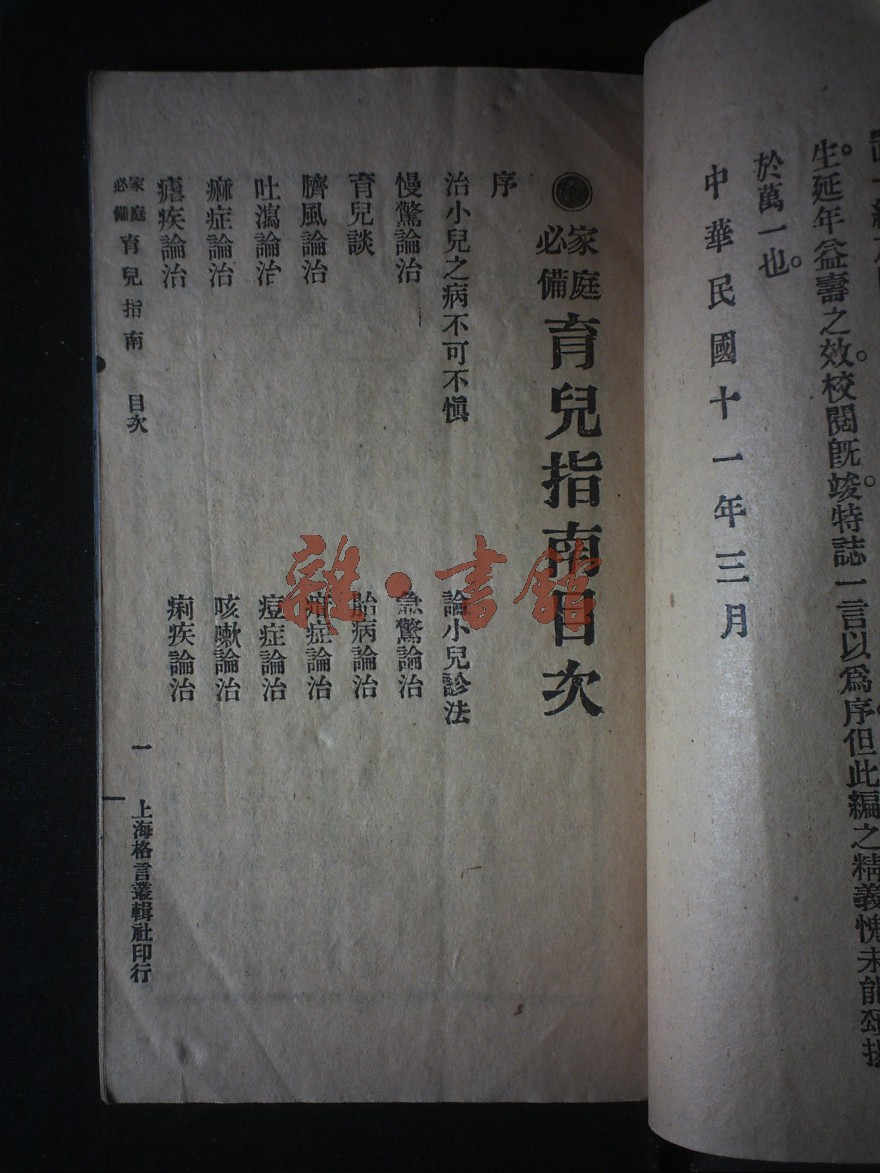 生。延年益壽之效。校閱既竣。特誌一言以爲序。但此編之精義愧未能頌揚
於萬一也。
中華民國十一年三月
家庭必備 育兒指南目次
序
治小兒之病不可不慎
論小兒診法
慢驚論治
急驚論治
育兒談
胎病論治
臍風論治
疳症論治
吐瀉論治
痘症論治
痲症論治
咳嗽論治
瘧疾論治
痢疾論治
家庭必備 育兒指南 目次 一 上海格言叢輯社印行
雜·書館